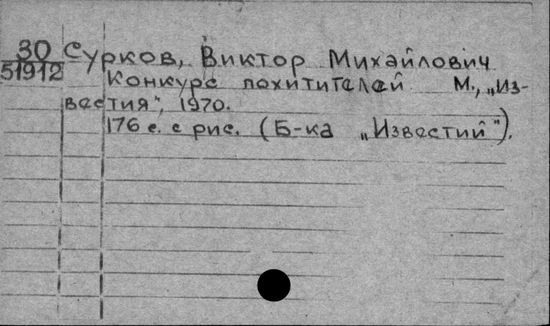 30 Сурков, Виктор Михайлович
51912
Конкурс похитителей М., „Из-
вестия", 1970.
176 с. с рис. (Б-ка „Известий").